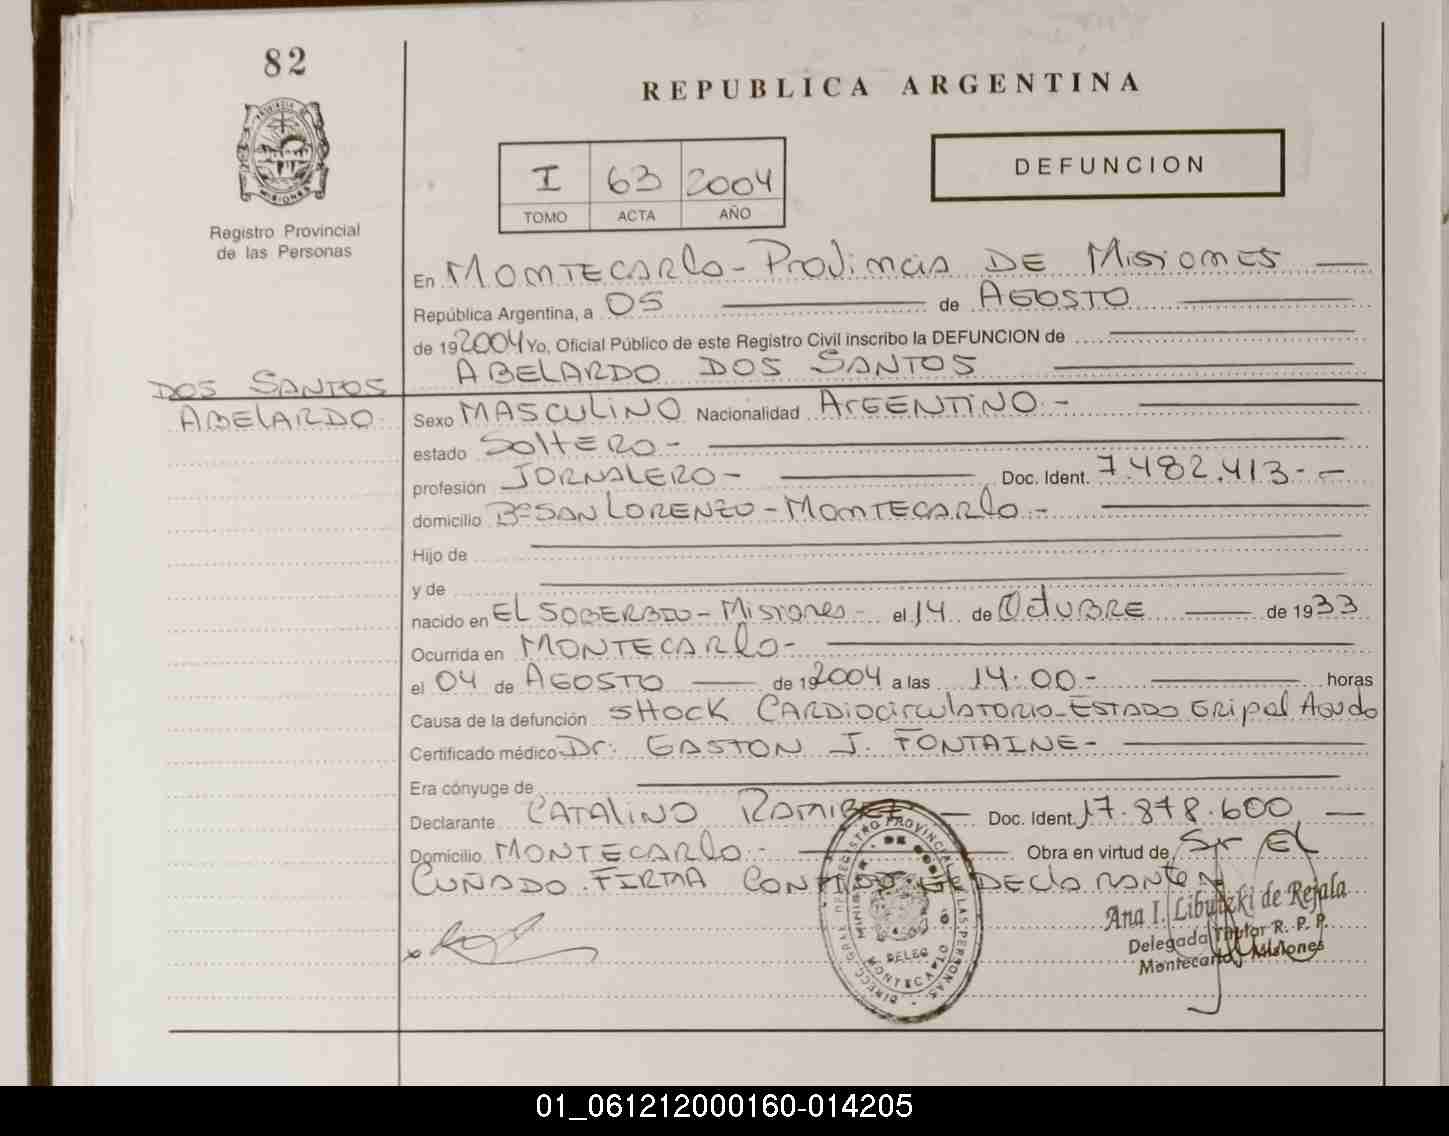 82
REPUBLICA ARGENTINA
PROVINCIA DE
MISIONES
I 63 2004
TOMO ACTA AÑO
DEFUNCION
Registro Provincial
de las Personas
En MONTECARLO - PROVINCIA DE MISIONES
República Argentina, a 05 de AGOSTO
de 192004 Yo, Oficial Público de este Registro Civil inscribo la DEFUNCION de
ABELARDO DOS SANTOS
DOS SANTOS
ABELARDO
Sexo MASCULINO Nacionalidad ARGENTINO.-
estado SOLTERO-
profesión JORNALERO- Doc. Ident. 7.482.413.-
domicilio Bº SAN LORENZO - MONTECARLO.-
Hijo de
y de
nacido en EL SOBERBIO - Misiones- el 14 de OCTUBRE de 1933
Ocurrida en MONTECARLO-
el 04 de AGOSTO de 192004 a las 14.00- horas
Causa de la defunción SHOCK CARDIOCIRCULATORIO - ESTADO GRIPAL AGUDO
Certificado médico Dr. GASTON J. FONTAINE-
Era cónyuge de
Declarante CATALINO RAMIREZ Doc. Ident. 17.878.600
Domicilio MONTECARLO.- Obra en virtud de Sr EL
CUÑADO. FIRMA CONMIGO EL DECLARANTE
DIREC. GRAL. DEL REGISTRO PROVINCIAL DE LAS PERSONAS
DELEG
MONTECARLO
Ana I. Libutzki de Rejala
Delegada Titular R. P. P.
Montecarlo Misiones
01_061212000160-014205